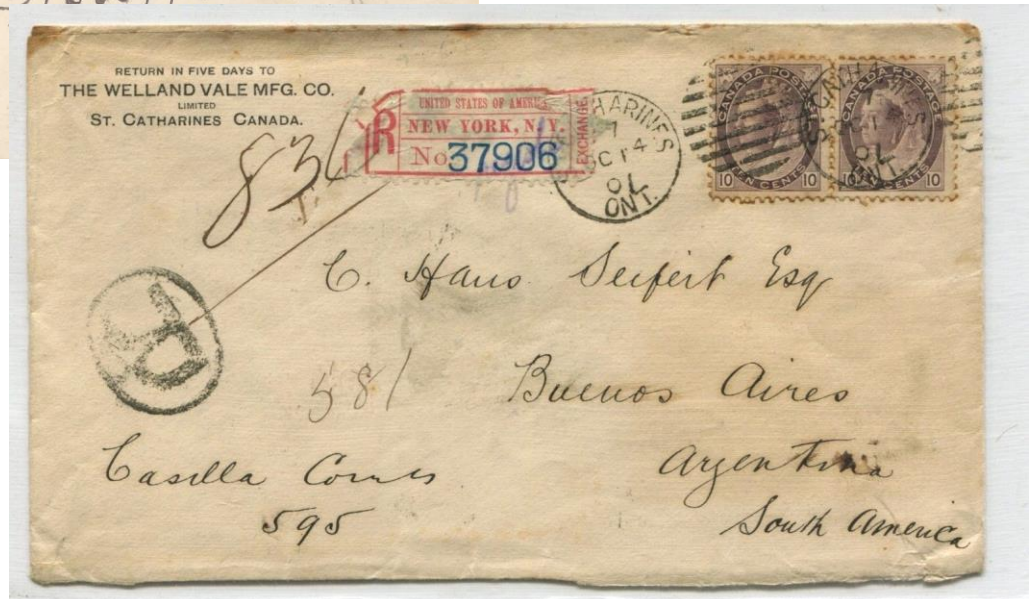 RETURN IN FIVE DAYS TO
THE WELLAND VALE MFG. CO.
LIMITED
ST. CATHARINES CANADA.
R
UNITED STATES OF AMERICA
NEW YORK, N.Y.
No 37906
EXCHANGE
CATHARINES
7
OC 14
01
ONT.
CANADA POSTAGE
10 TEN CENTS 10
CANADA POSTAGE
10 CENTS 10
836
R
C. Hans Seifert Esq
581
Buenos Aires
Casilla Correo
595
Argentina
South America